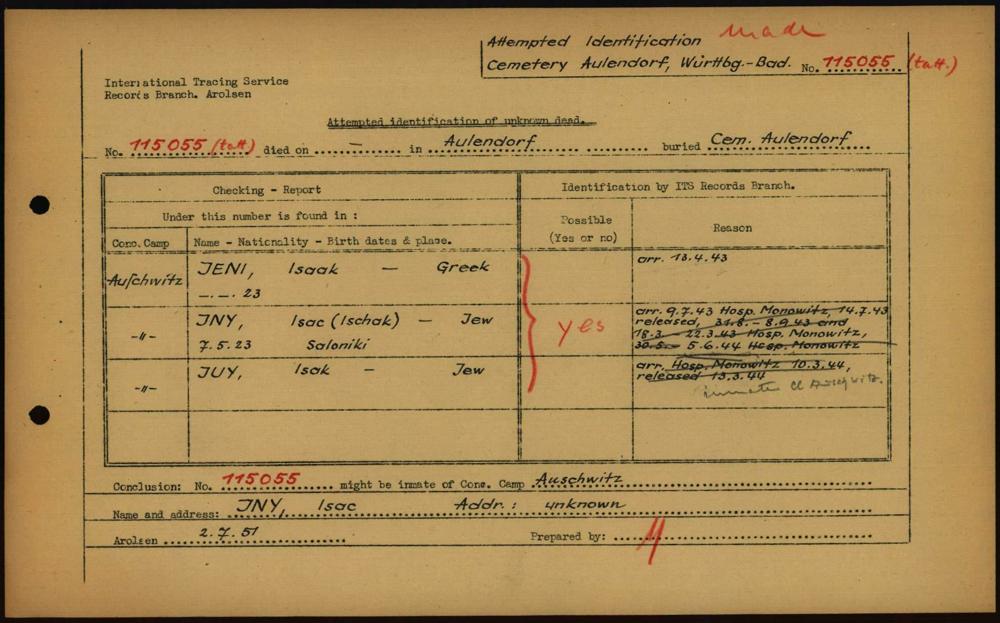 made
Attempted Identification
Cemetery Aulendorf, Württbg.-Bad. No. 115055 (tatt.)
International Tracing Service
Records Branch. Arolsen
Attempted identification of unknown dead.
No. 115055 (tatt) died on – in Aulendorf buried Cem. Aulendorf
Checking - Report
Identification by ITS Records Branch.
Under this number is found in :
Possible
(Yes or no)
Reason
Conc. Camp
Name - Nationality - Birth dates & place.
Auschwitz
JENI, Isaak — Greek
—.—. 23
arr. 13.4.43
-"-
JNY, Isac (Ischak) — Jew
7.5.23 Saloniki
yes
arr. 9.7.43 Hosp. Monowitz, 14.7.43
released, 31.8. - 8.9.43 and
18.3. - 22.3.43 Hosp. Monowitz,
30.5. - 5.6.44 Hosp. Monowitz
-"-
JUY, Isak – Jew
arr. Hosp. Monowitz 10.3.44,
released 13.3.44
inmate Cl Auschwitz.
Conclusion: No. 115055 might be inmate of Conc. Camp Auschwitz
Name and address: JNY, Isac Addr.: unknown
Arolsen 2.7.51 Prepared by: